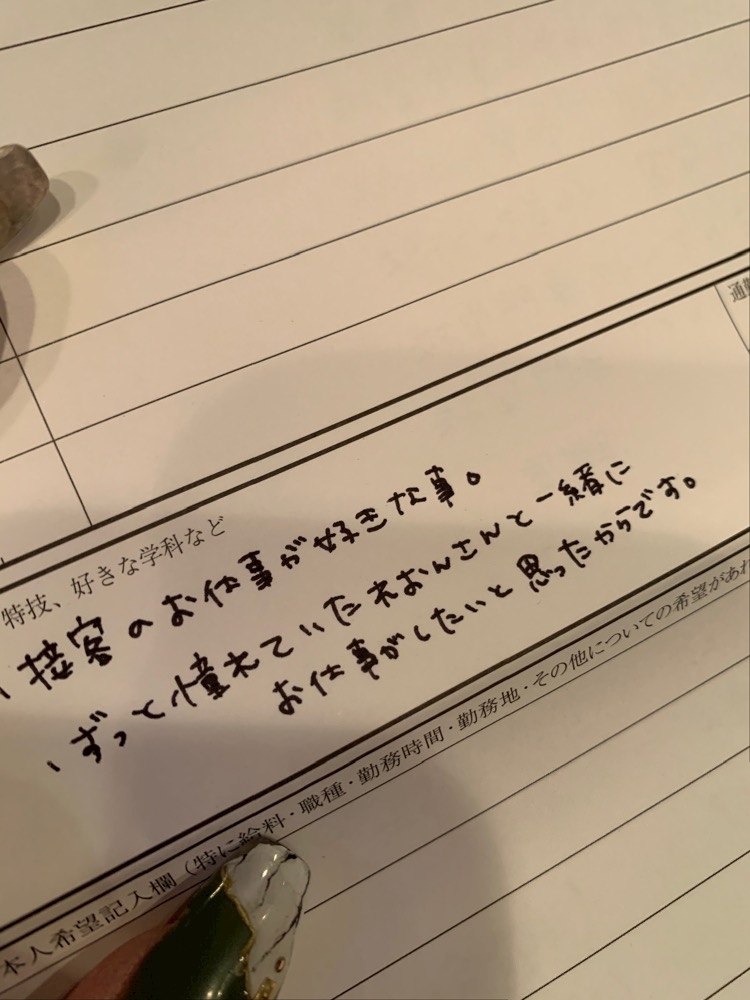 通
特技、好きな学科など
、接客のお仕事が好きな事。
、ずっと憧れていたれおんさんと一緒に
お仕事がしたいと思ったからです。
本人希望記入欄（特に給料・職種・勤務時間・勤務地・その他についての希望があれ